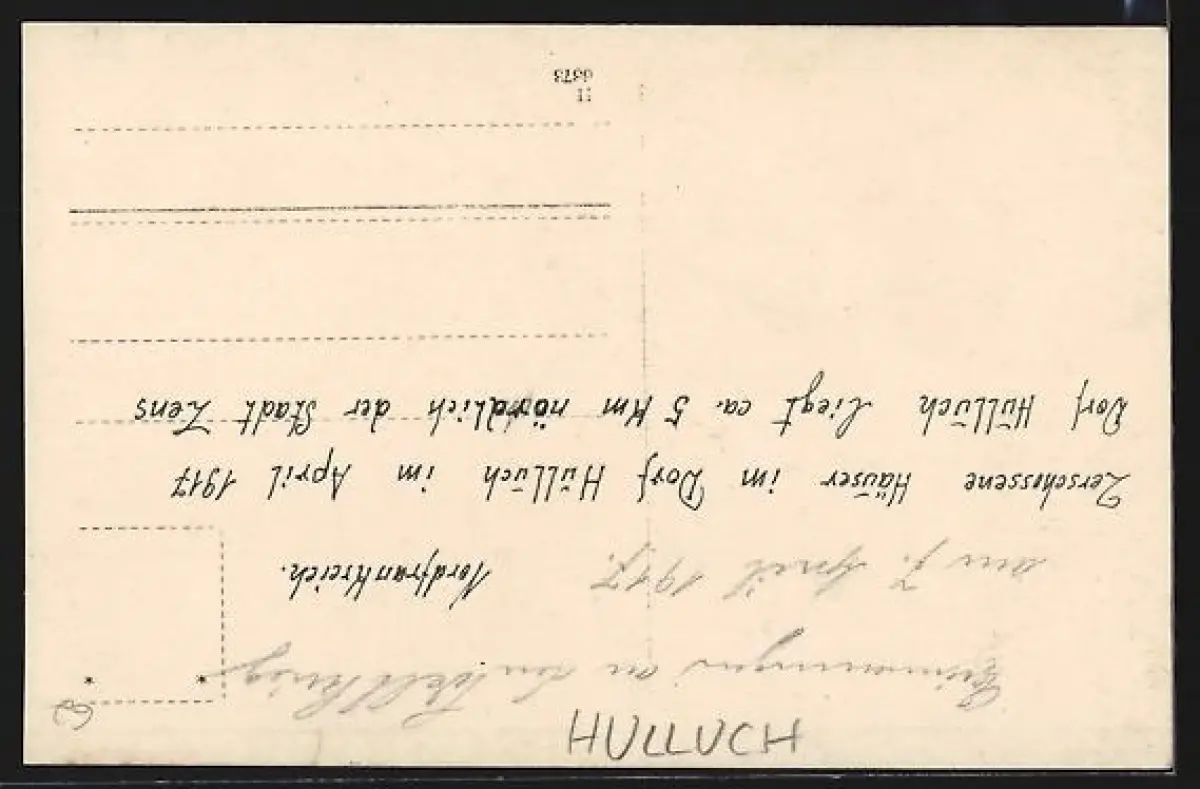 Erinnerungen an den Weltkrieg
am 7. April 1917.
Nordfrankreich.
Zerschossene Häuser im Dorf Hüllüch im April 1917
Dorf Hüllüch liegt ca. 5 Km nördlich der Stadt Lens
11
HULLUCH